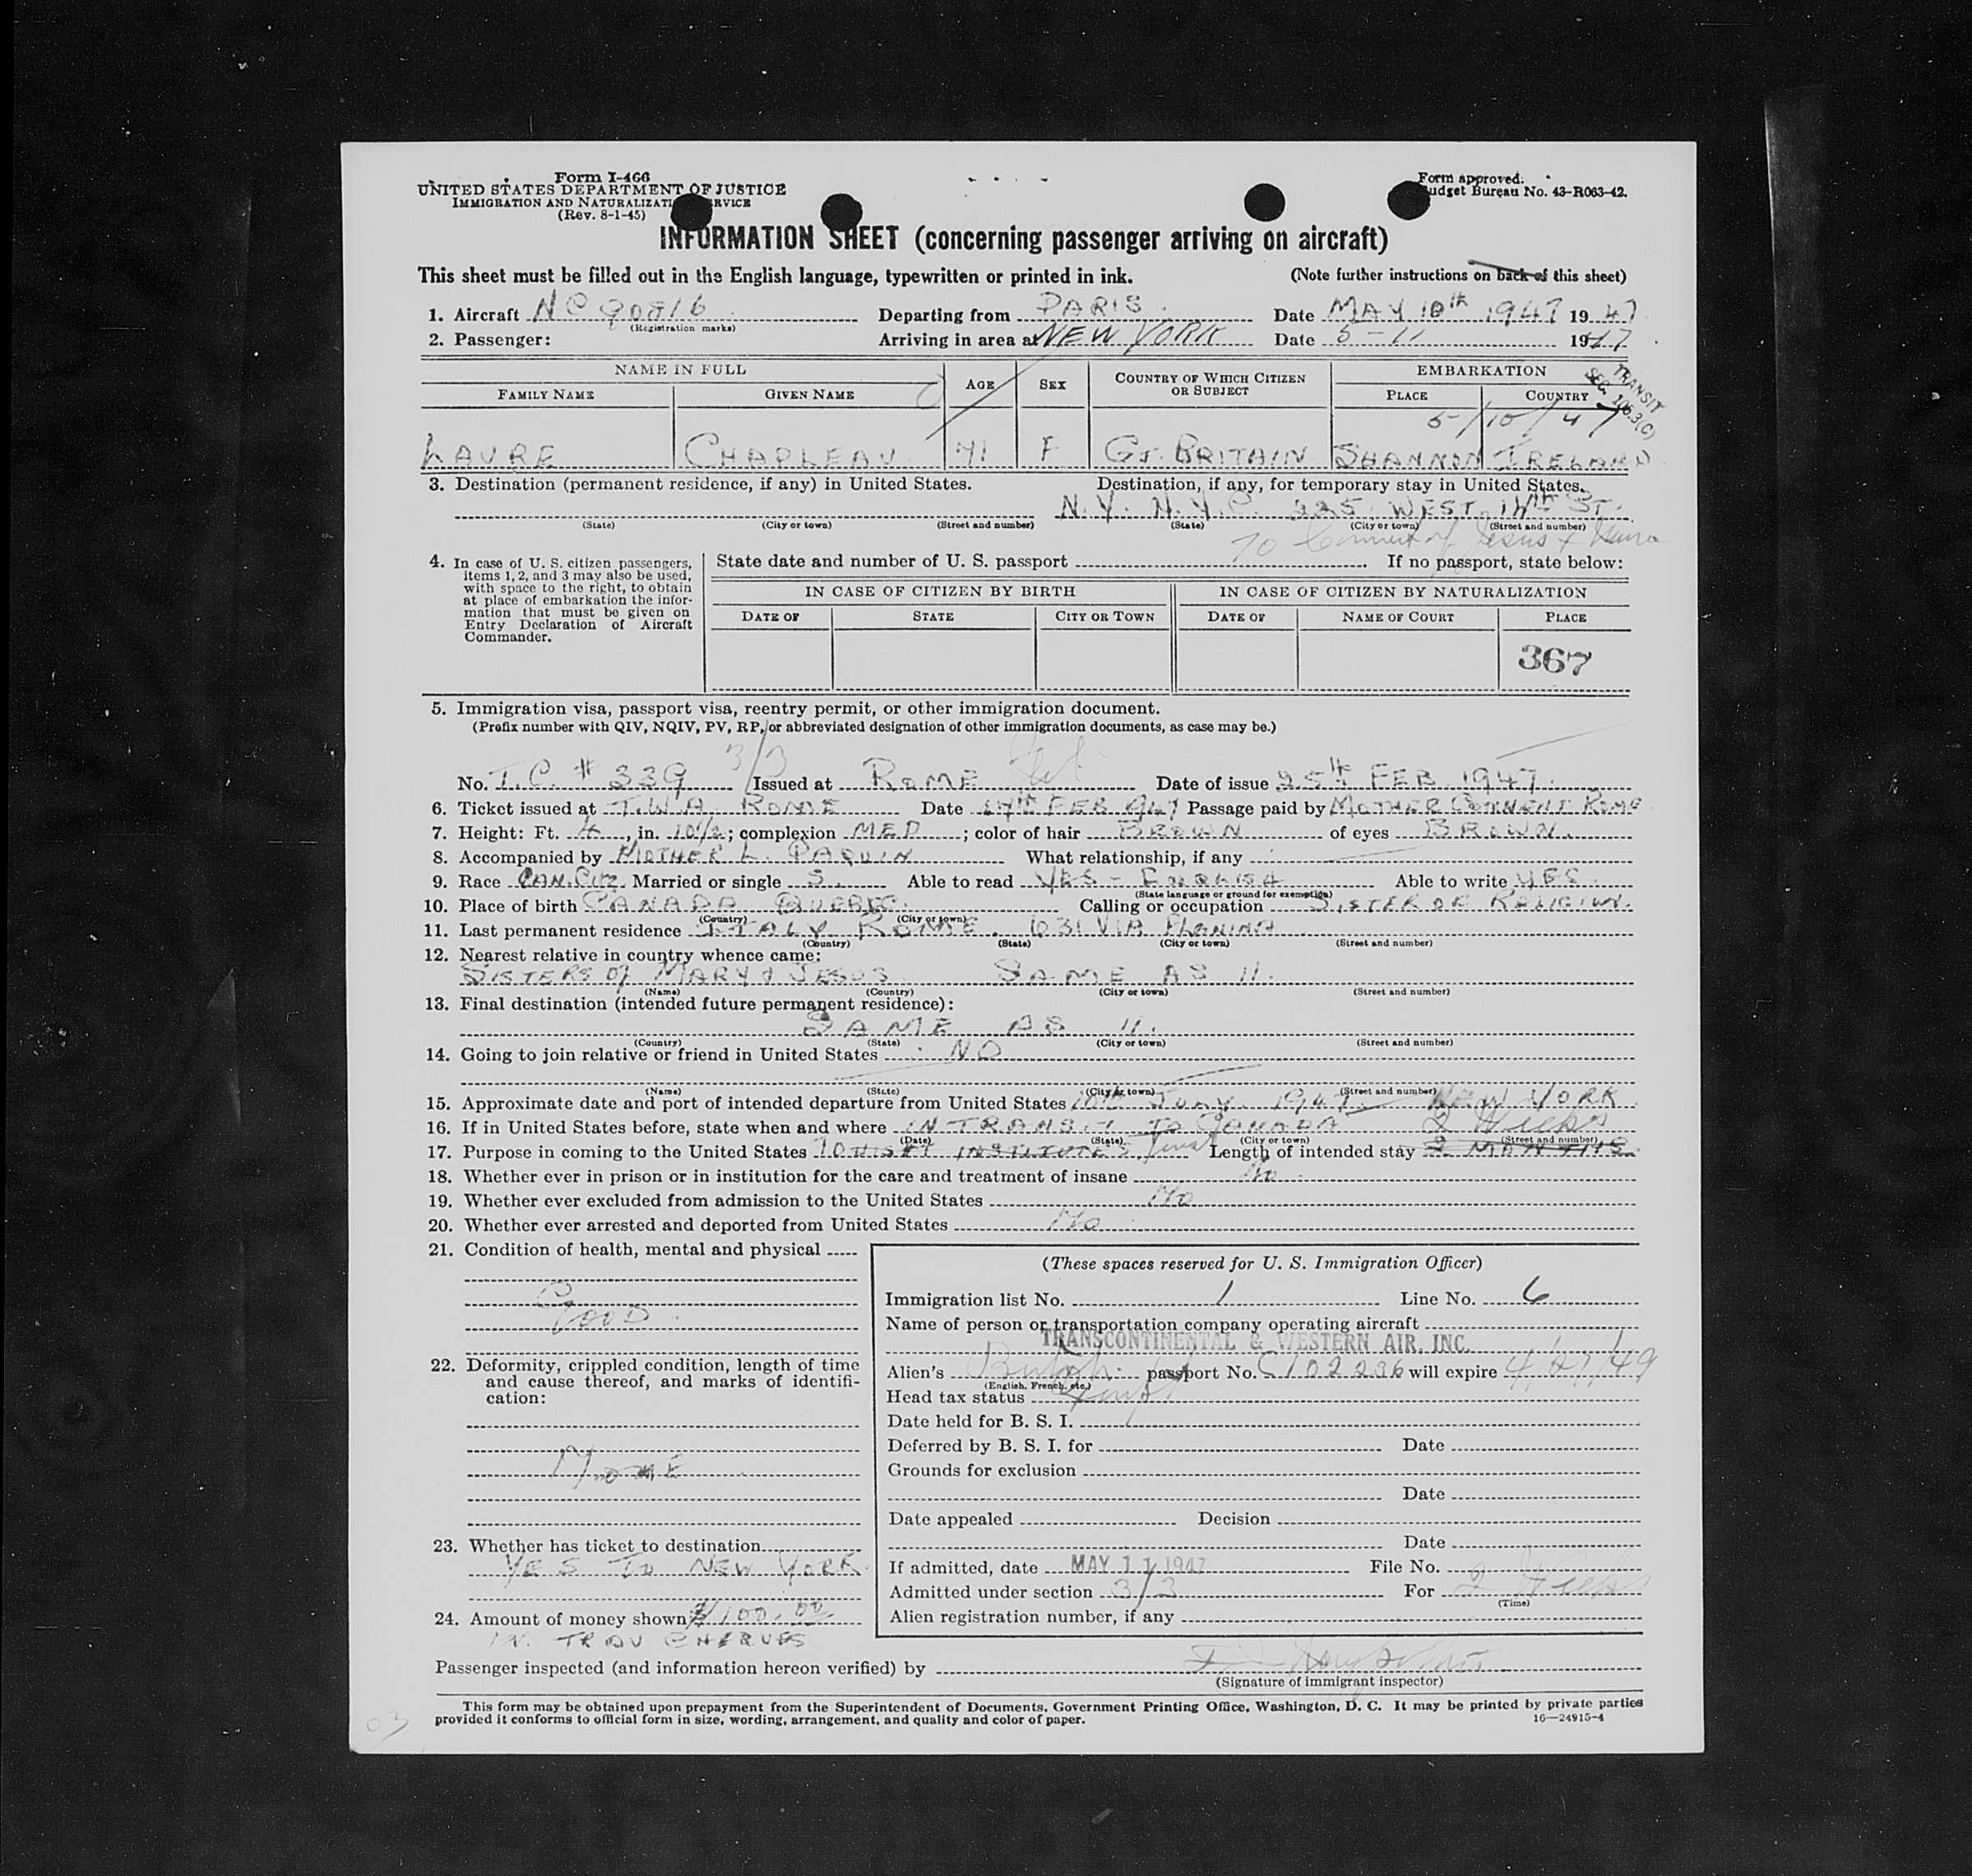 Form I-466
UNITED STATES DEPARTMENT OF JUSTICE
IMMIGRATION AND NATURALIZATI RVICE
(Rev. 8-1-45)
Form approved.
udget Bureau No. 43-R063-42.
INFORMATION SHEET (concerning passenger arriving on aircraft)
This sheet must be filled out in the English language, typewritten or printed in ink. (Note further instructions on back of this sheet)
1. Aircraft NC 90816 Departing from PARIS Date MAY 10th 1947 1947
(Registration marks)
2. Passenger: Arriving in area at NEW YORK Date 5-11 1947
NAME IN FULL AGE SEX COUNTRY OF WHICH CITIZEN OR SUBJECT EMBARKATION
FAMILY NAME GIVEN NAME PLACE COUNTRY
TRANSIT
SEC. 106.3(C)
5/10/47
LAURE CHAPLEAU 41 F GT. BRITAIN SHANNON IRELAND
3. Destination (permanent residence, if any) in United States. Destination, if any, for temporary stay in United States.
N.Y. N.Y.C. 225 WEST 14th ST.
(State) (City or town) (Street and number) (State) (City or town) (Street and number)
To Convent of Jesus &
4. In case of U. S. citizen passengers, items 1, 2, and 3 may also be used, with space to the right, to obtain at place of embarkation the information that must be given on Entry Declaration of Aircraft Commander.
State date and number of U. S. passport If no passport, state below:
IN CASE OF CITIZEN BY BIRTH IN CASE OF CITIZEN BY NATURALIZATION
DATE OF STATE CITY OR TOWN DATE OF NAME OF COURT PLACE
367
5. Immigration visa, passport visa, reentry permit, or other immigration document.
(Prefix number with QIV, NQIV, PV, RP, or abbreviated designation of other immigration documents, as case may be.)
3/3
No. T.C. # 339 Issued at ROME Date of issue 25th FEB 1947
6. Ticket issued at T.W.A. ROME Date FEB 947 Passage paid by MOTHER CONVENT ROME
7. Height: Ft. 4, in. 10 1/2; complexion MED; color of hair BROWN of eyes BROWN
8. Accompanied by MOTHER L. PAQUIN What relationship, if any
9. Race CAN. CITZ. Married or single S. Able to read YES - ENGLISH Able to write YES
(State language or ground for exemption)
10. Place of birth CANADA QUEBEC Calling or occupation SISTER OF RELIGION.
(Country) (City or town)
11. Last permanent residence ITALY ROME. 631 VIA FLAMINA
(Country) (State) (City or town) (Street and number)
12. Nearest relative in country whence came:
SISTERS OF MARY & JESUS SAME AS 11.
(Name) (Country) (City or town) (Street and number)
13. Final destination (intended future permanent residence):
SAME AS 11.
(Country) (State) (City or town) (Street and number)
14. Going to join relative or friend in United States NO
(Name) (State) (City or town) (Street and number)
15. Approximate date and port of intended departure from United States 10th JULY 1947 NEW YORK
16. If in United States before, state when and where IN TRANSIT TO CANADA 2 Weeks
(Date) (State) (City or town) (Street and number)
17. Purpose in coming to the United States TO VISIT INSTITUTES Length of intended stay 2 MONTHS
18. Whether ever in prison or in institution for the care and treatment of insane No
19. Whether ever excluded from admission to the United States No
20. Whether ever arrested and deported from United States No
21. Condition of health, mental and physical
GOOD
22. Deformity, crippled condition, length of time and cause thereof, and marks of identification:
NONE
23. Whether has ticket to destination
YES TO NEW YORK
24. Amount of money shown $100.00
IN TRAV CHEQUES
(These spaces reserved for U. S. Immigration Officer)
Immigration list No. 1 Line No. 6
Name of person or transportation company operating aircraft
TRANSCONTINENTAL & WESTERN AIR, INC.
Alien's British passport No. C102236 will expire 4/27/49
(English, French, etc.)
Head tax status Exempt
Date held for B. S. I.
Deferred by B. S. I. for Date
Grounds for exclusion
Date
Date appealed Decision
Date
If admitted, date MAY 11 1947 File No.
Admitted under section 3/3 For 2 Weeks
(Time)
Alien registration number, if any
Passenger inspected (and information hereon verified) by
(Signature of immigrant inspector)
This form may be obtained upon prepayment from the Superintendent of Documents, Government Printing Office, Washington, D. C. It may be printed by private parties
provided it conforms to official form in size, wording, arrangement, and quality and color of paper. 16—24915-4
03